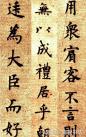 用衆賓客不言
無以成禮居乎
遠為大臣而好